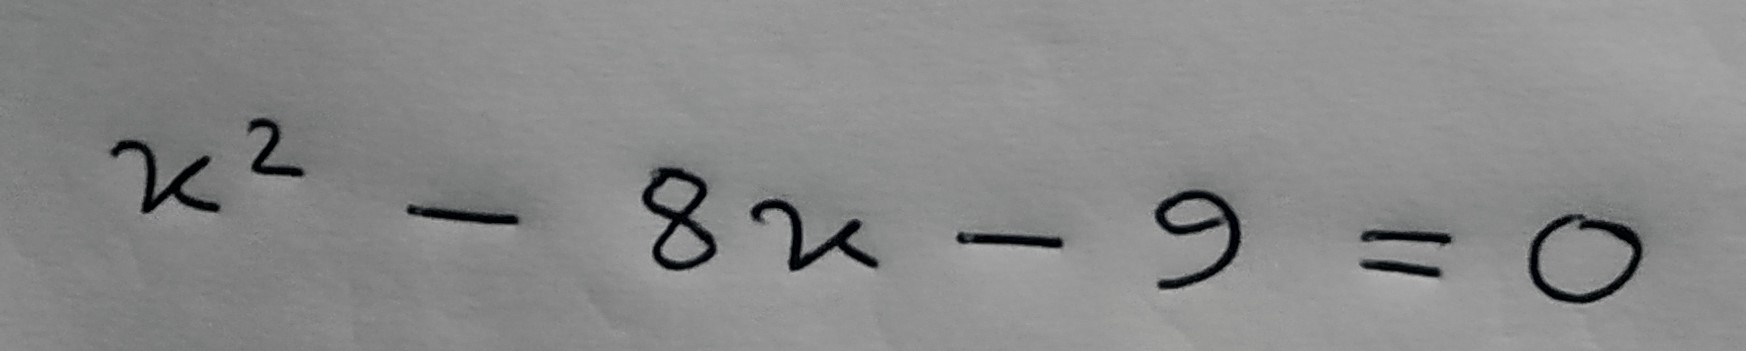 x² - 8x - 9 = 0